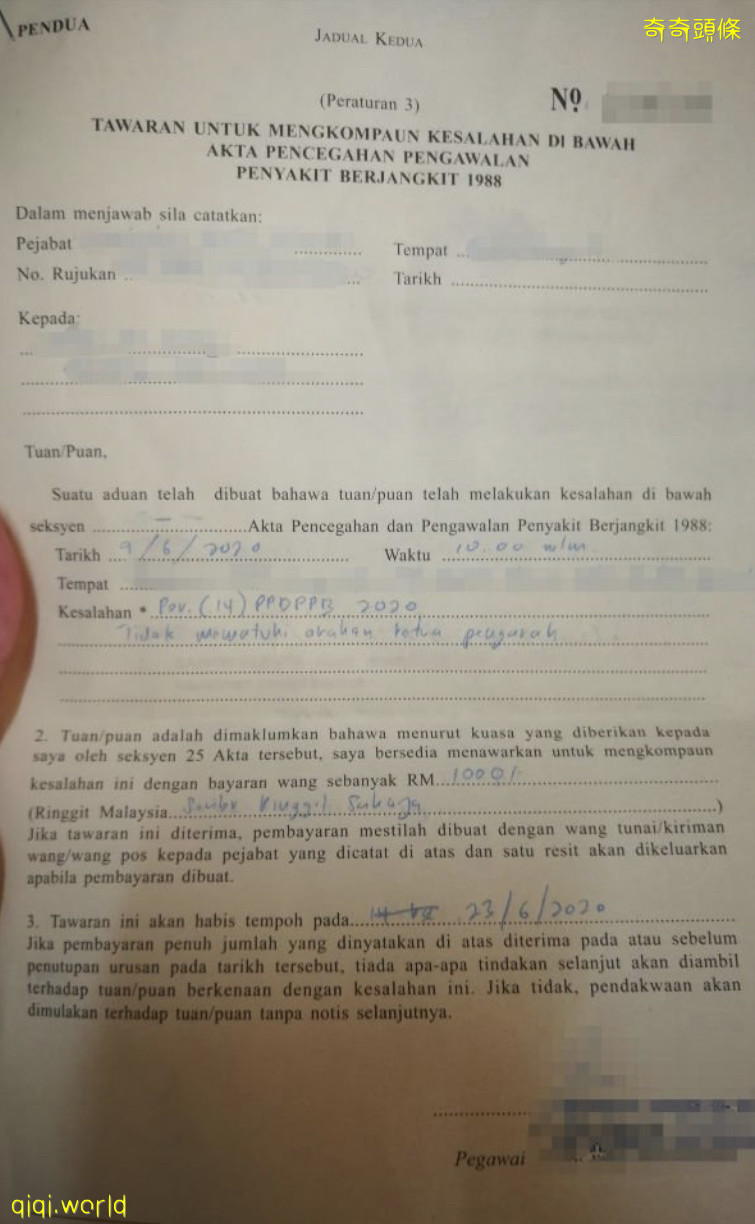 PENDUA
奇奇頭條
JADUAL KEDUA
(Peraturan 3)
Nº
TAWARAN UNTUK MENGKOMPAUN KESALAHAN DI BAWAH
AKTA PENCEGAHAN PENGAWALAN
PENYAKIT BERJANGKIT 1988
Dalam menjawab sila catatkan:
Pejabat .............. Tempat ...
No. Rujukan .. ... Tarikh ...
Kepada:
Tuan/Puan,
Suatu aduan telah dibuat bahawa tuan/puan telah melakukan kesalahan di bawah
seksyen ... – ... Akta Pencegahan dan Pengawalan Penyakit Berjangkit 1988:
Tarikh ... 9/6/2020 Waktu ... 10.00 mlm
Tempat ...
Kesalahan * ... Per. (14) PPDPPB 2020
Tidak mematuhi arahan ketua pengarah
2. Tuan/puan adalah dimaklumkan bahawa menurut kuasa yang diberikan kepada
saya oleh seksyen 25 Akta tersebut, saya bersedia menawarkan untuk mengkompaun
kesalahan ini dengan bayaran wang sebanyak RM... 1000/-
(Ringgit Malaysia... Seribu Ringgit Sahaja ...)
Jika tawaran ini diterima, pembayaran mestilah dibuat dengan wang tunai/kiriman
wang/wang pos kepada pejabat yang dicatat di atas dan satu resit akan dikeluarkan
apabila pembayaran dibuat.
3. Tawaran ini akan habis tempoh pada... 23/6/2020
Jika pembayaran penuh jumlah yang dinyatakan di atas diterima pada atau sebelum
penutupan urusan pada tarikh tersebut, tiada apa-apa tindakan selanjut akan diambil
terhadap tuan/puan berkenaan dengan kesalahan ini. Jika tidak, pendakwaan akan
dimulakan terhadap tuan/puan tanpa notis selanjutnya.
Pegawai
qiqi.world